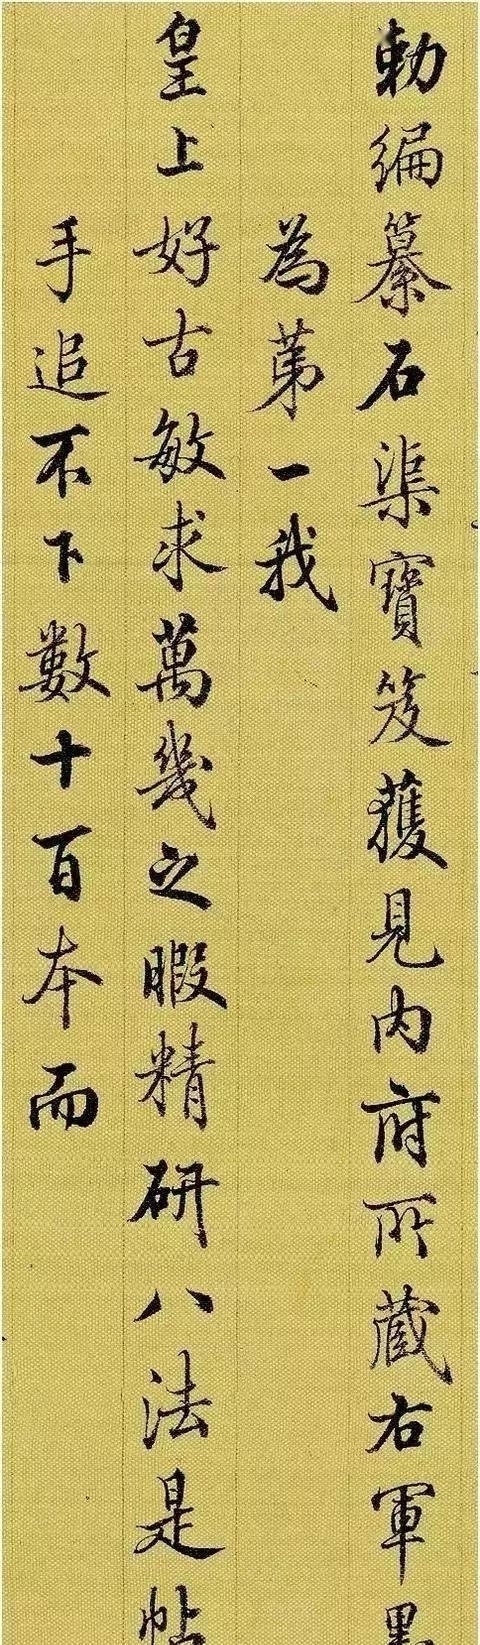 勅編纂石渠寶笈獲見内府所蔵右軍
為苐一我
皇上好古敏求萬幾之暇精研八法是帖
手追不下數十百本而